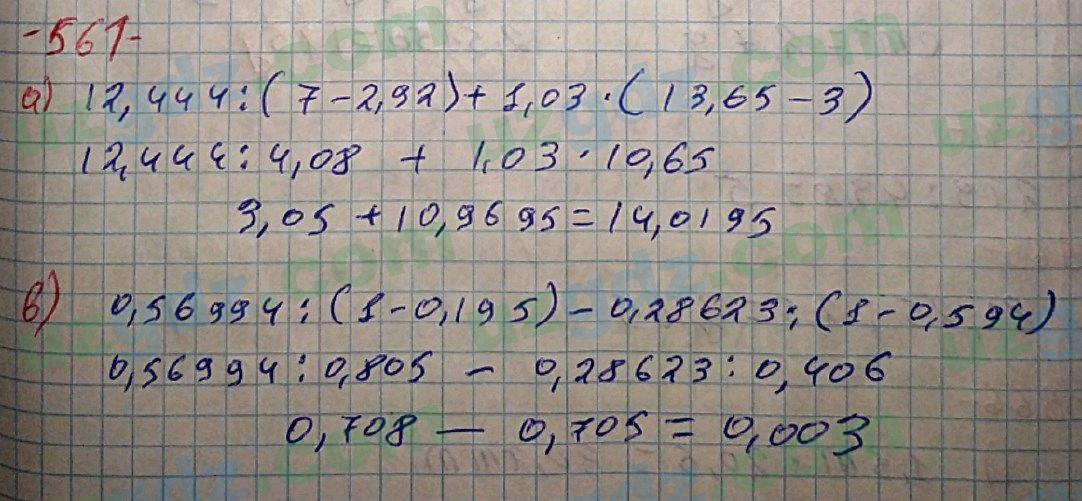 -561-
а) 12,444:(7-2,92)+1,03·(13,65-3)
12,444:4,08 + 1,03·10,65
3,05+10,9695=14,0195
в) 0,56994:(1-0,195)-0,28623:(1-0,594)
0,56994:0,805 - 0,28623:0,406
0,708 - 0,705 = 0,003